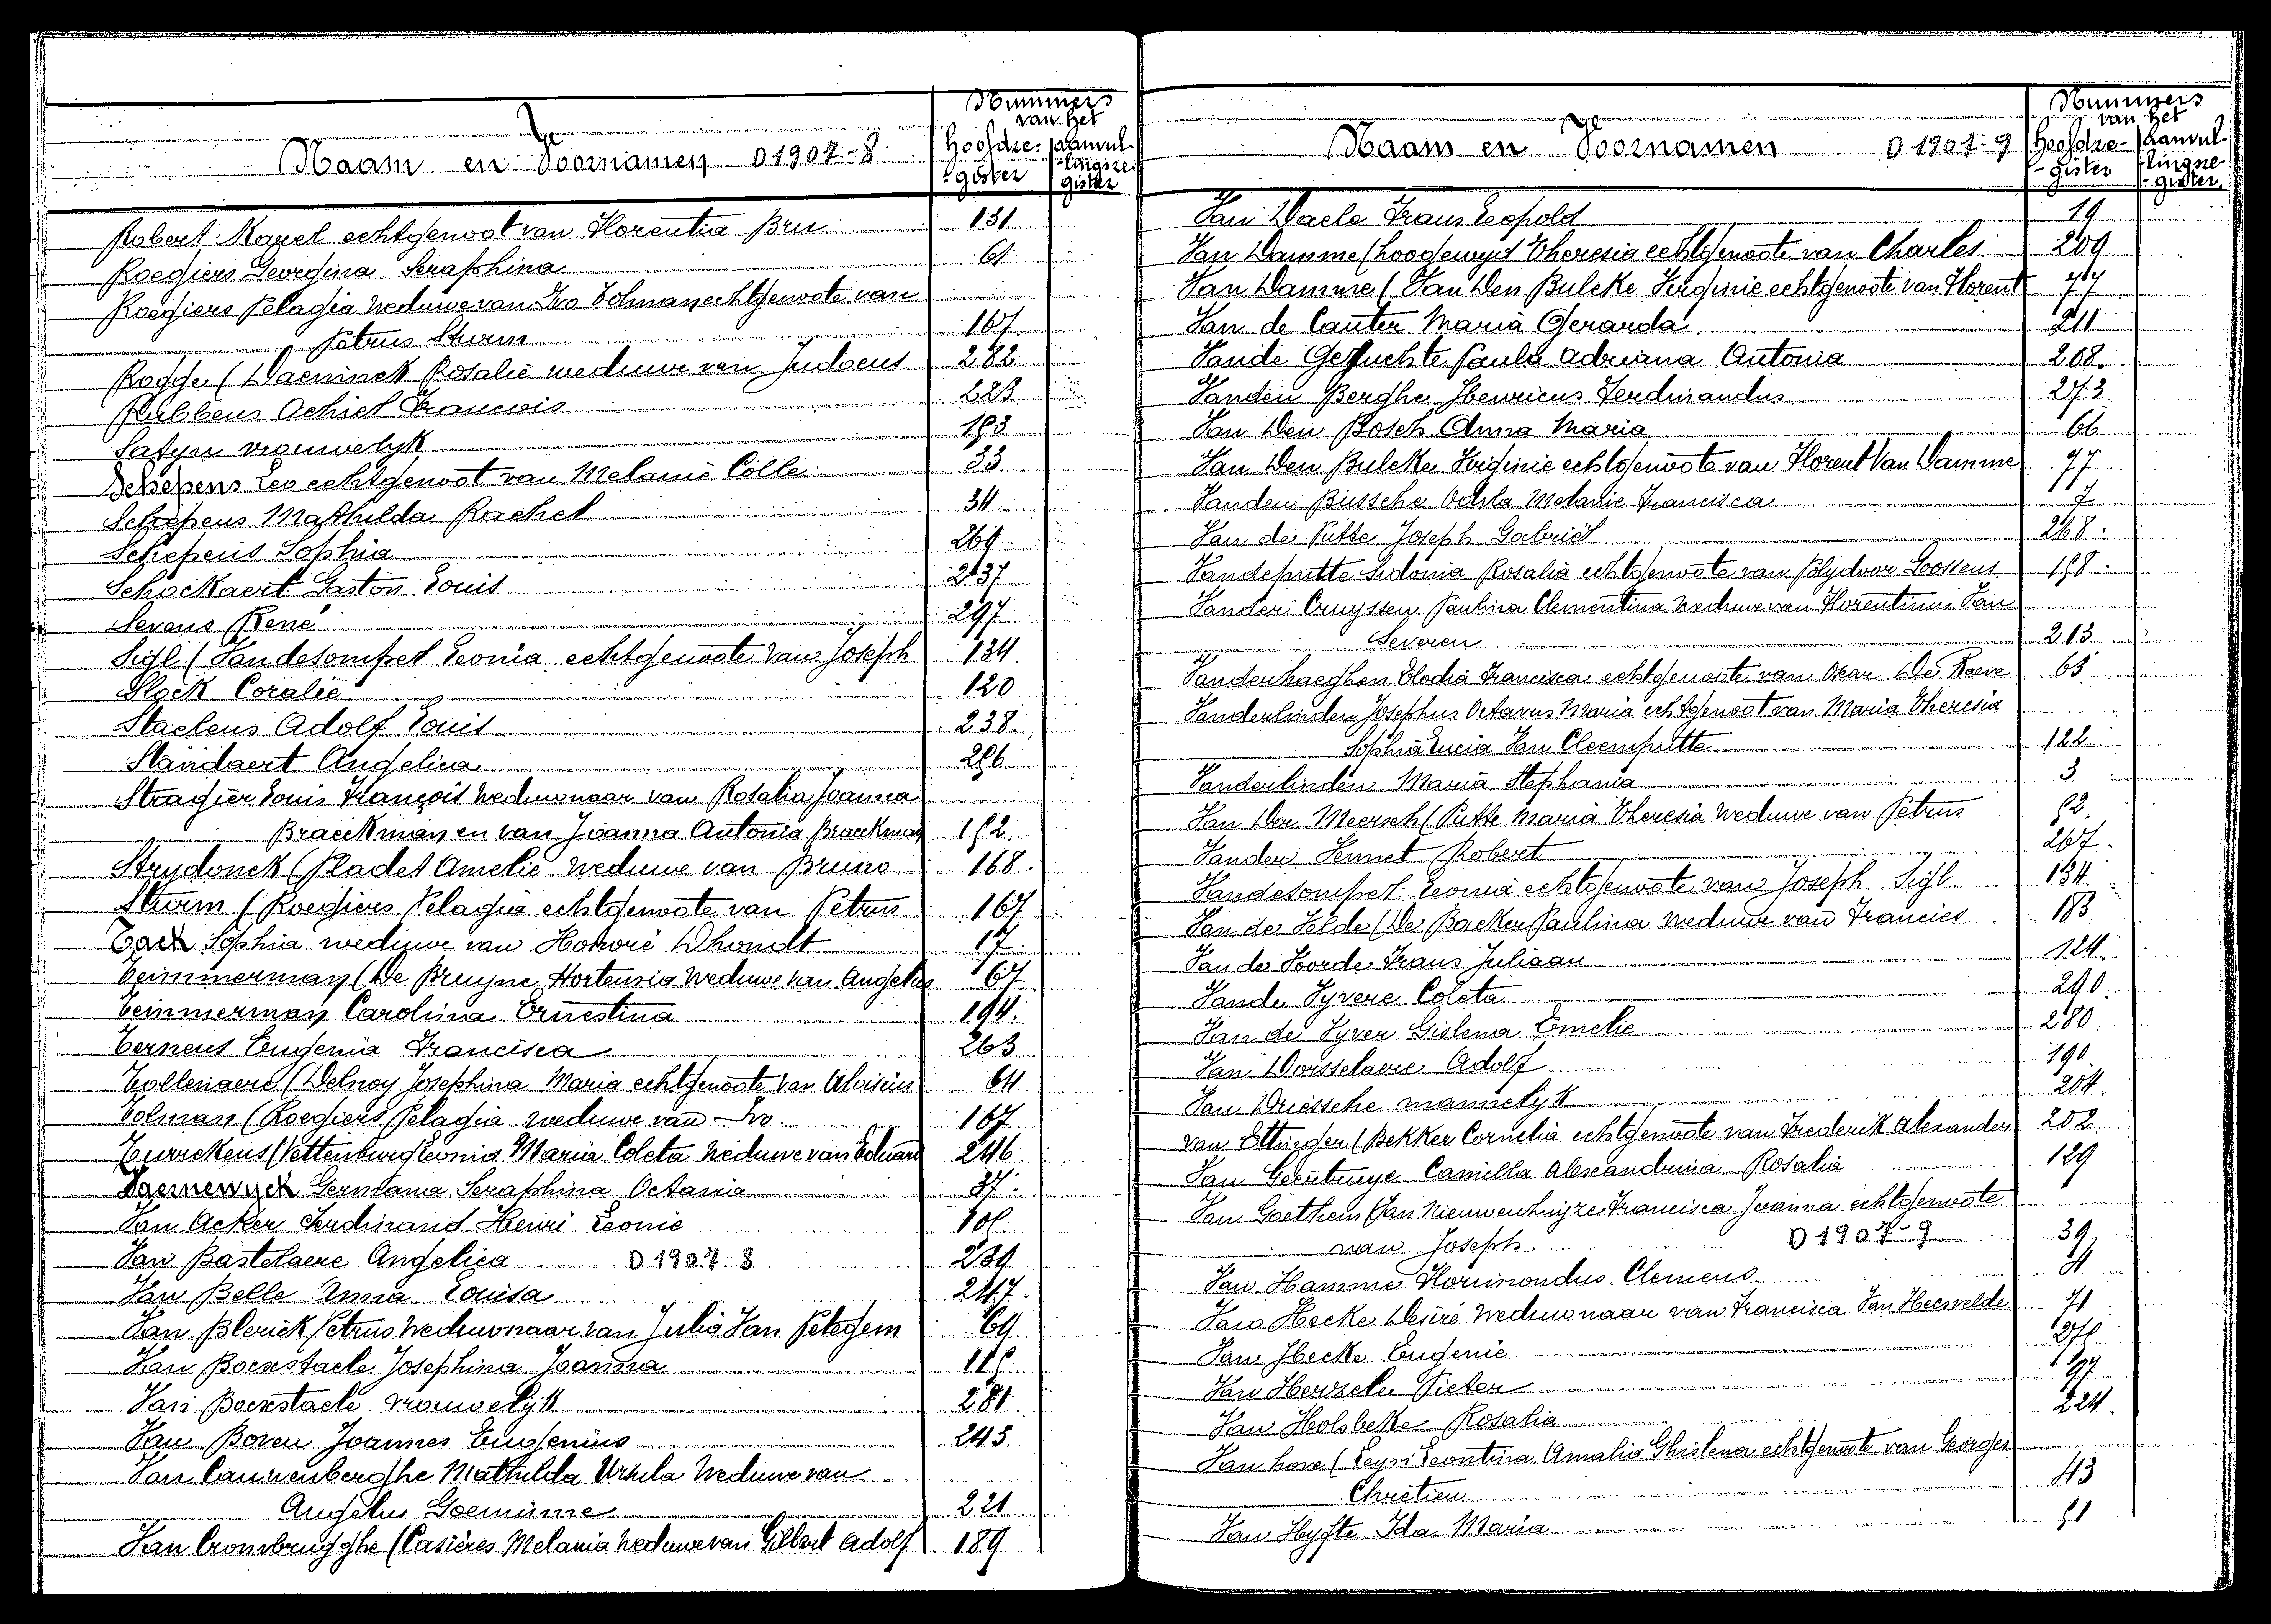 Nummers
van het
Naam en Voornamen D 1907-8
Hoofdre- gister
aanvul- lingsre- gister
Robert Marcel echtgenoot van Florentia Bru 131
Roegiers Georgina Seraphina 61
Roegiers Pelagia weduwe van Ivo Tolman echtgenoote van
Petrus Sturm 167
Rogge (Daeninck Rosalie weduwe van Judocus 282
Rubbens Achiel Francois 223
Satyn vrouwelijk
Schepens Leo echtgenoot van Melanie Colle 33
Schepens Mathilda Rachel 34
Schepens Sophia 269
Schockaert Gaston Louis 237
Sevens René 297
Sigl (Vandesompel Leonia echtgenoote van Joseph 134
Slock Coralie 120
Staelens Adolf Louis 238
Standaert Angelica
Stragier Louis François weduwnaar van Rosalia Joanna
Braeckman en van Joanna Antonia Braeckman
Strydonck (Pladet Amelie weduwe van Bruno 168
Sturm (Roegiers Pelagia echtgenoote van Petrus 167
Tack Sophia weduwe van Honoré Dhondt 17
Temmerman (De Bruyne Hortensia weduwe van Angelus 67
Temmerman Carolina Ernestina 194
Ternest Eugenia Francisca 263
Tollenaere (Delnoy Josephina Maria echtgenoote van Aloisius 64
Tolman (Roegiers Pelagia weduwe van Ivo 167
Turrekens (Vettenburg Leonia Maria Coleta weduwe van Eduard 246
Germana Seraphina Octavia 37
Van Acker Ferdinand Henri Leonie
Van Bastelaere Angelica D 1907-8 239
Van Belle Anna Louisa 247
Van Blerick Petrus weduwnaar van Julia Van Petegem 69
Van Boexstaele Josephina Joanna
Van Boexstaele vrouwelijk 281
Van Boven Joannes Eugenius 243
Van Cauwenberghe Mathilda Ursula weduwe van
Angelus Goeminne 221
Van Crombrugghe (Casières Melania weduwe van Gilbert Adolf 189
Nummers
van het
Naam en Voornamen D 1907-9
Hoofdre- gister
aanvul- lingsre- gister
Van Daele Frans Leopold 19
Van Damme (Hoogewys Theresia echtgenoote van Charles 209
Van Damme (Van Den Bulcke Virginie echtgenoote van Florent 77
Van de Canter Maria Gerarda 211
Vande Gehuchte Paula Adriana Antonia 208
Vanden Berghe Henricus Ferdinandus 273
Van Den Bosch Anna Maria 66
Van Den Bulcke Virginie echtgenoote van Florent Van Damme 77
Vanden Bussche Odila Melanie Francisca 7
Van de Putte Joseph Gabriël 268
Vandeputte Sidonia Rosalia echtgenoote van Polydoor Goossens
Vander Cruyssen Paulina Clementina weduwe van Florentinus Van
Severen 213
Vanderhaeghen Elodia Francisca echtgenoote van Oscar De Raeve 63
Vanderlinden Josephus Octavus Maria echtgenoot van Maria Theresia
Sophia Lucia Van Cleemputte 122
Vanderlinden Maria Stephania 3
Van Der Meersch (Putte Maria Theresia weduwe van Petrus
Vander Vennet Robert 267
Vandesompel Leonia echtgenoote van Joseph Sigl 134
Van de Velde (De Backer Paulina weduwe van Francies 183
Van de Voorde Frans Juliaan 124
Vande Vyvere Coleta 290
Van de Vyver Gislena Emelie 280
Van Dorsselaere Adolf 190
Van Driessche mannelijk 204
van Ettinger (Bekker Cornelia echtgenoote van Frederik Alexander 202
Van Geertruye Camilla Alexandrina Rosalia 129
Van Goethem (Van Nieuwenhuyze Francisca Joanna echtgenoote
van Joseph D 1907-9 39
Van Hamme Florimondus Clemens
Van Hecke Desiré weduwnaar van Francisca Van Heesvelde 71
Van Hecke Eugenie
Van Herzele Pieter 97
Van Holsbeke Rosalia 224
Van hove (Leys Leontina Amalia Ghislena echtgenoote van Georges
Chrétien 43
Van Hyfte Ida Maria